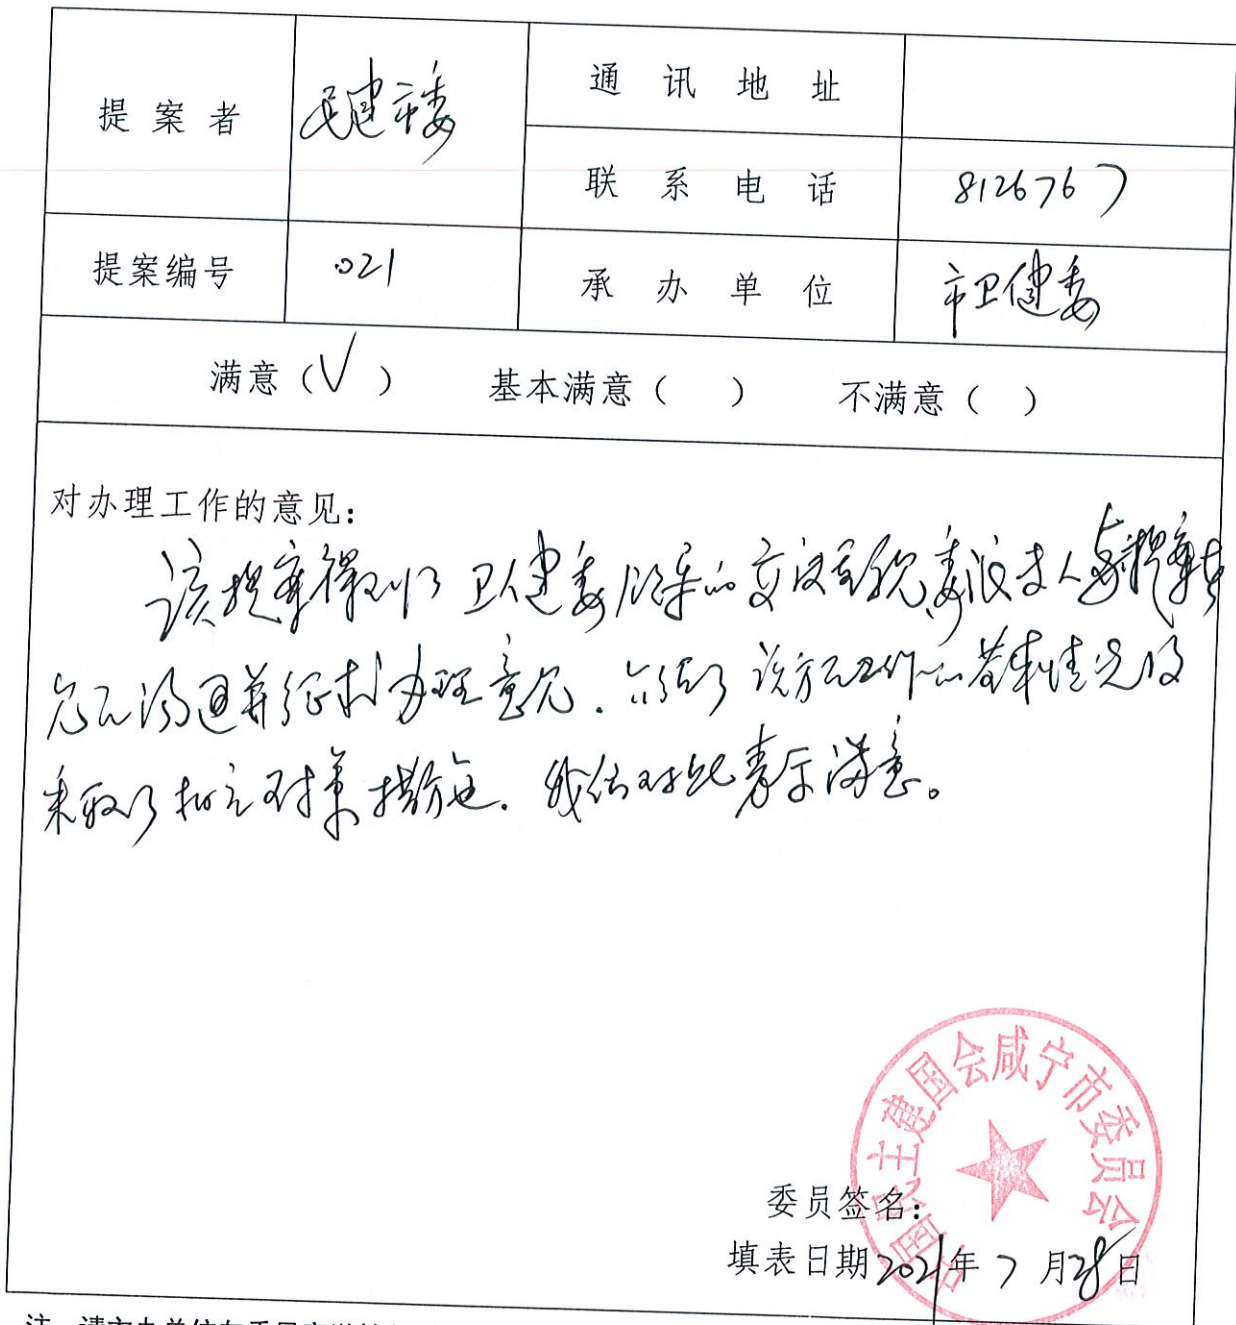 提案者 民建市委 通讯地址
联系电话 8126767
提案编号 021 承办单位 市卫健委
满意（√） 基本满意（ ） 不满意（ ）
对办理工作的意见：
该提案得到了卫健委领导的高度重视，委派专人与提案者
沟通并征求办理意见．介绍了该方面工作的基本情况及
采取了相应对策措施．我们对此表示满意。
中国民主建国会咸宁市委员会
委员签名：
填表日期 2021年7月28日